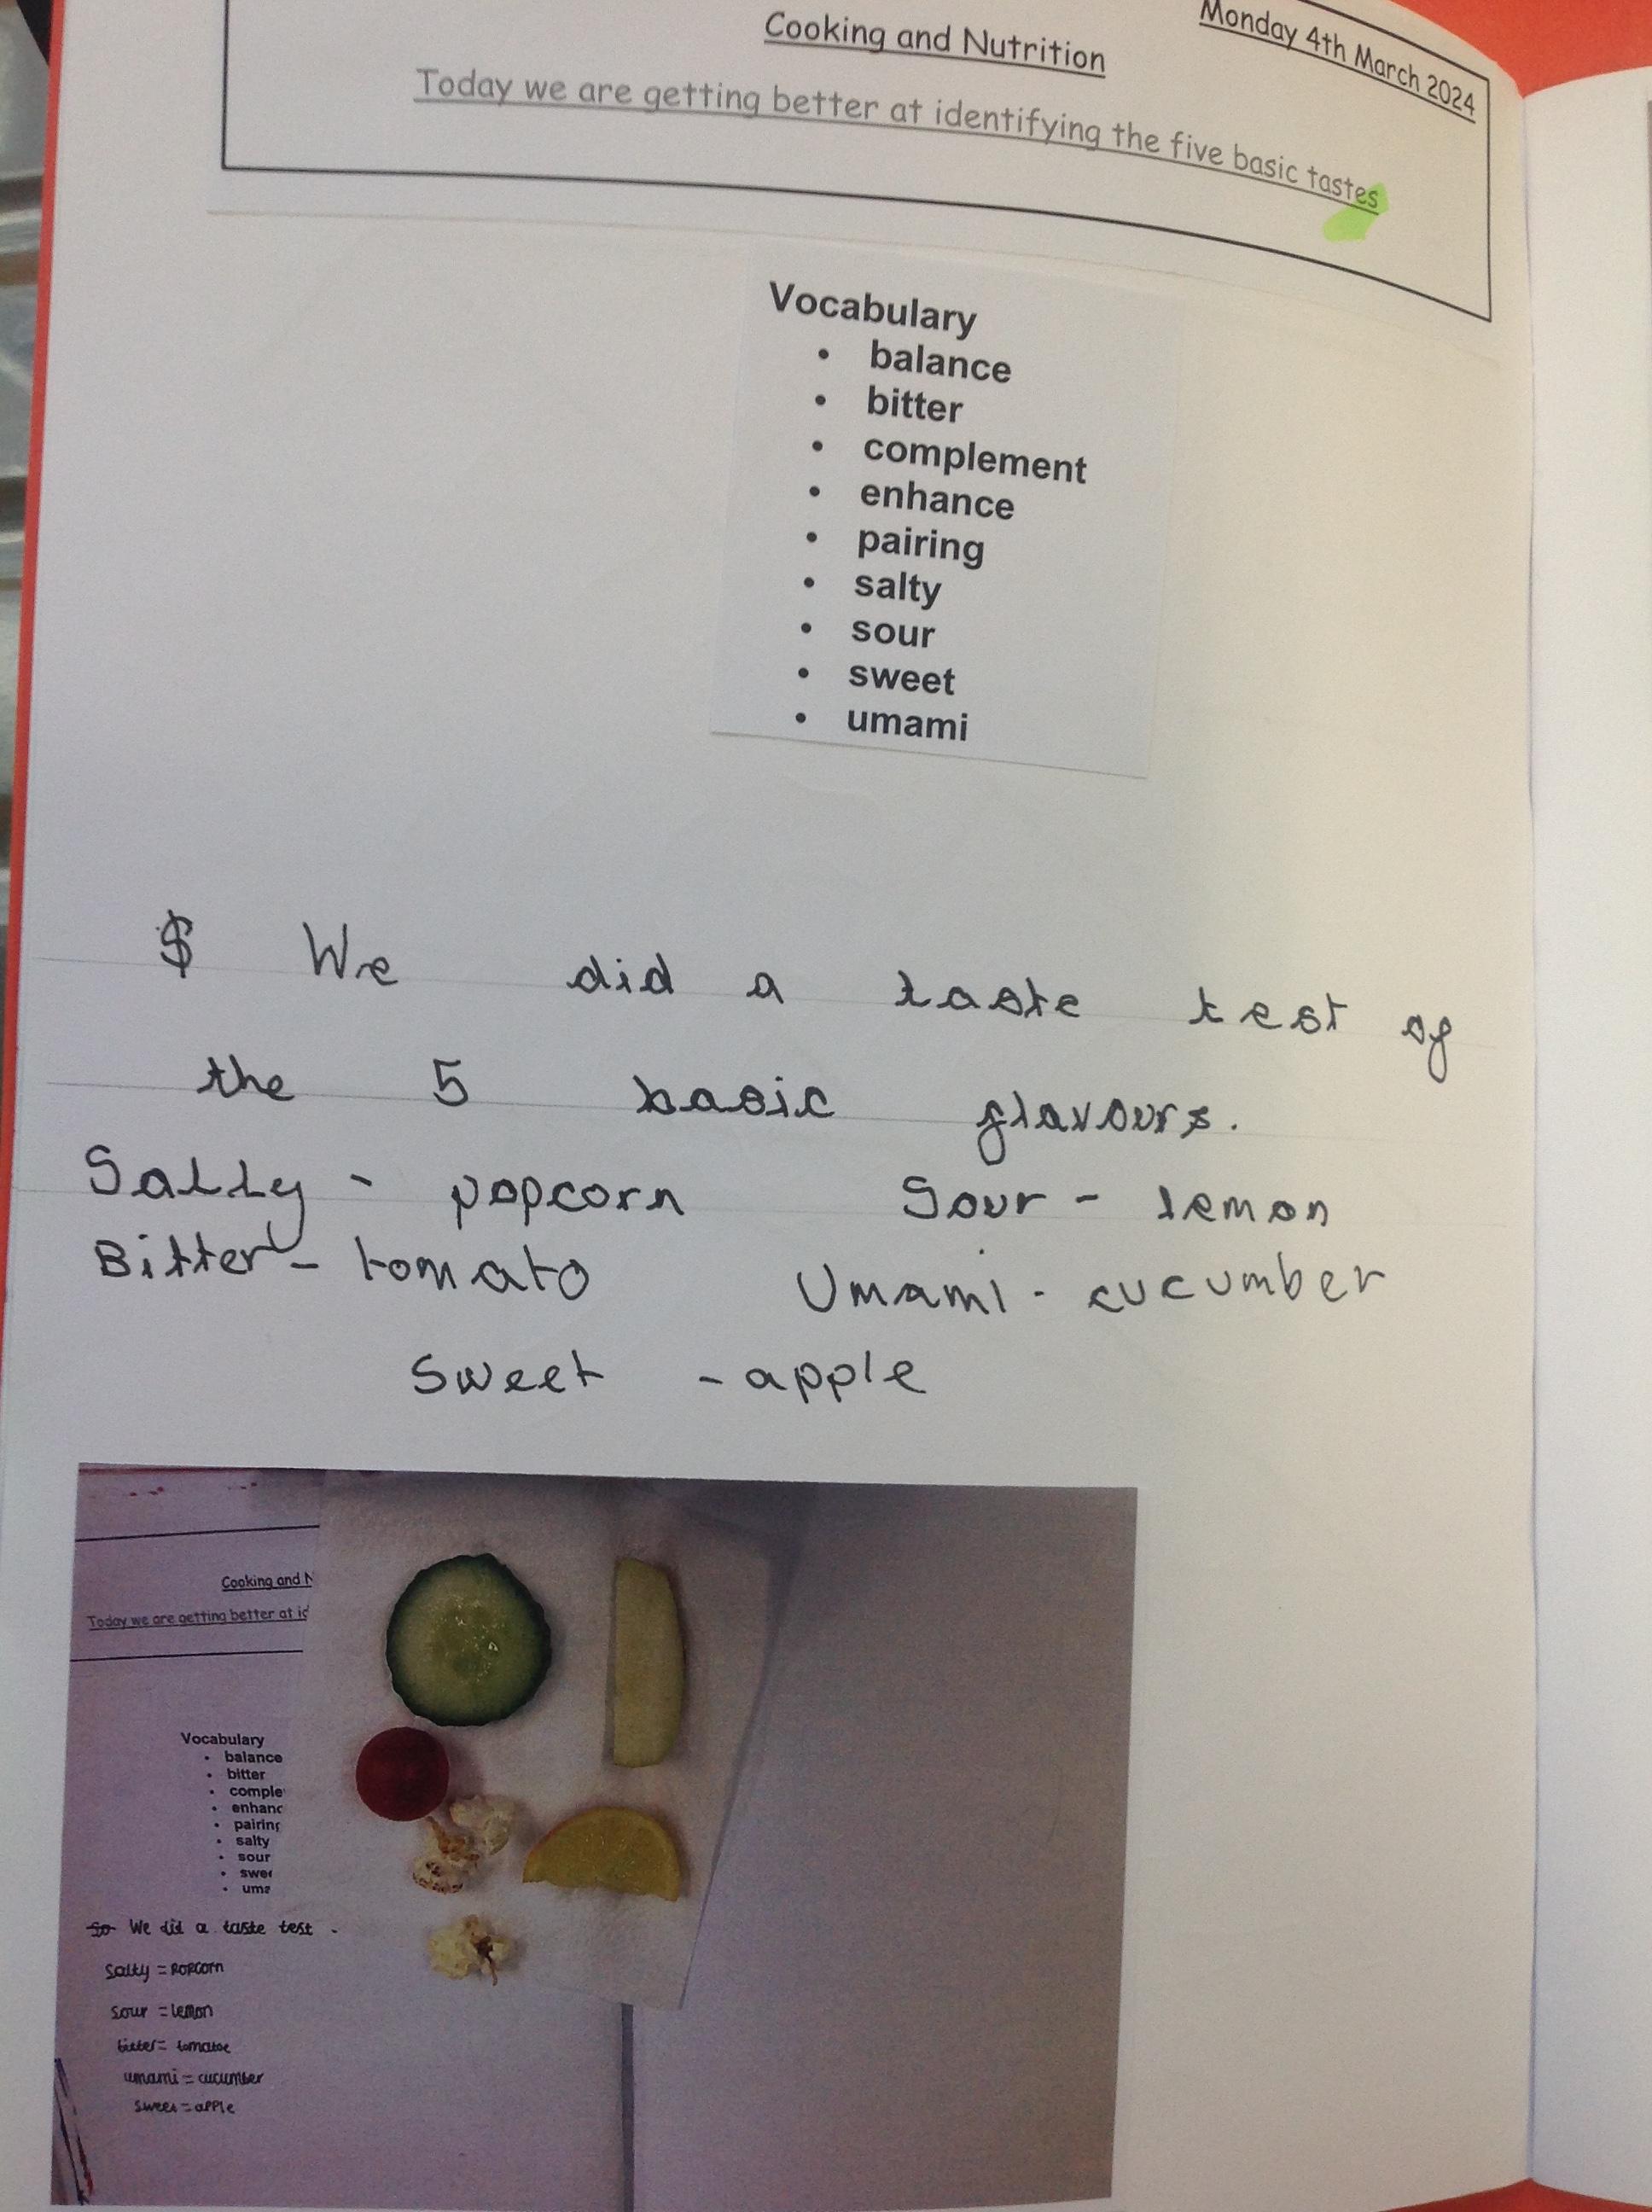 Monday 4th March 2024
Cooking and Nutrition
Today we are getting better at identifying the five basic tastes
Vocabulary
• balance
• bitter
• complement
• enhance
• pairing
• salty
• sour
• sweet
• umami
$ We did a taste test of
the 5 basic flavours.
Salty - popcorn Sour - lemon
Bitter - tomato Umami - cucumber
Sweet - apple
Cooking and N
Today we are getting better at id
Vocabulary
• balance
• bitter
• comple
• enhanc
• pairing
• salty
• sour
• swee
• uma
So We did a taste test .
Salty = popcorn
sour = lemon
bitter = tomatoe
umami = cucumber
sweet = apple